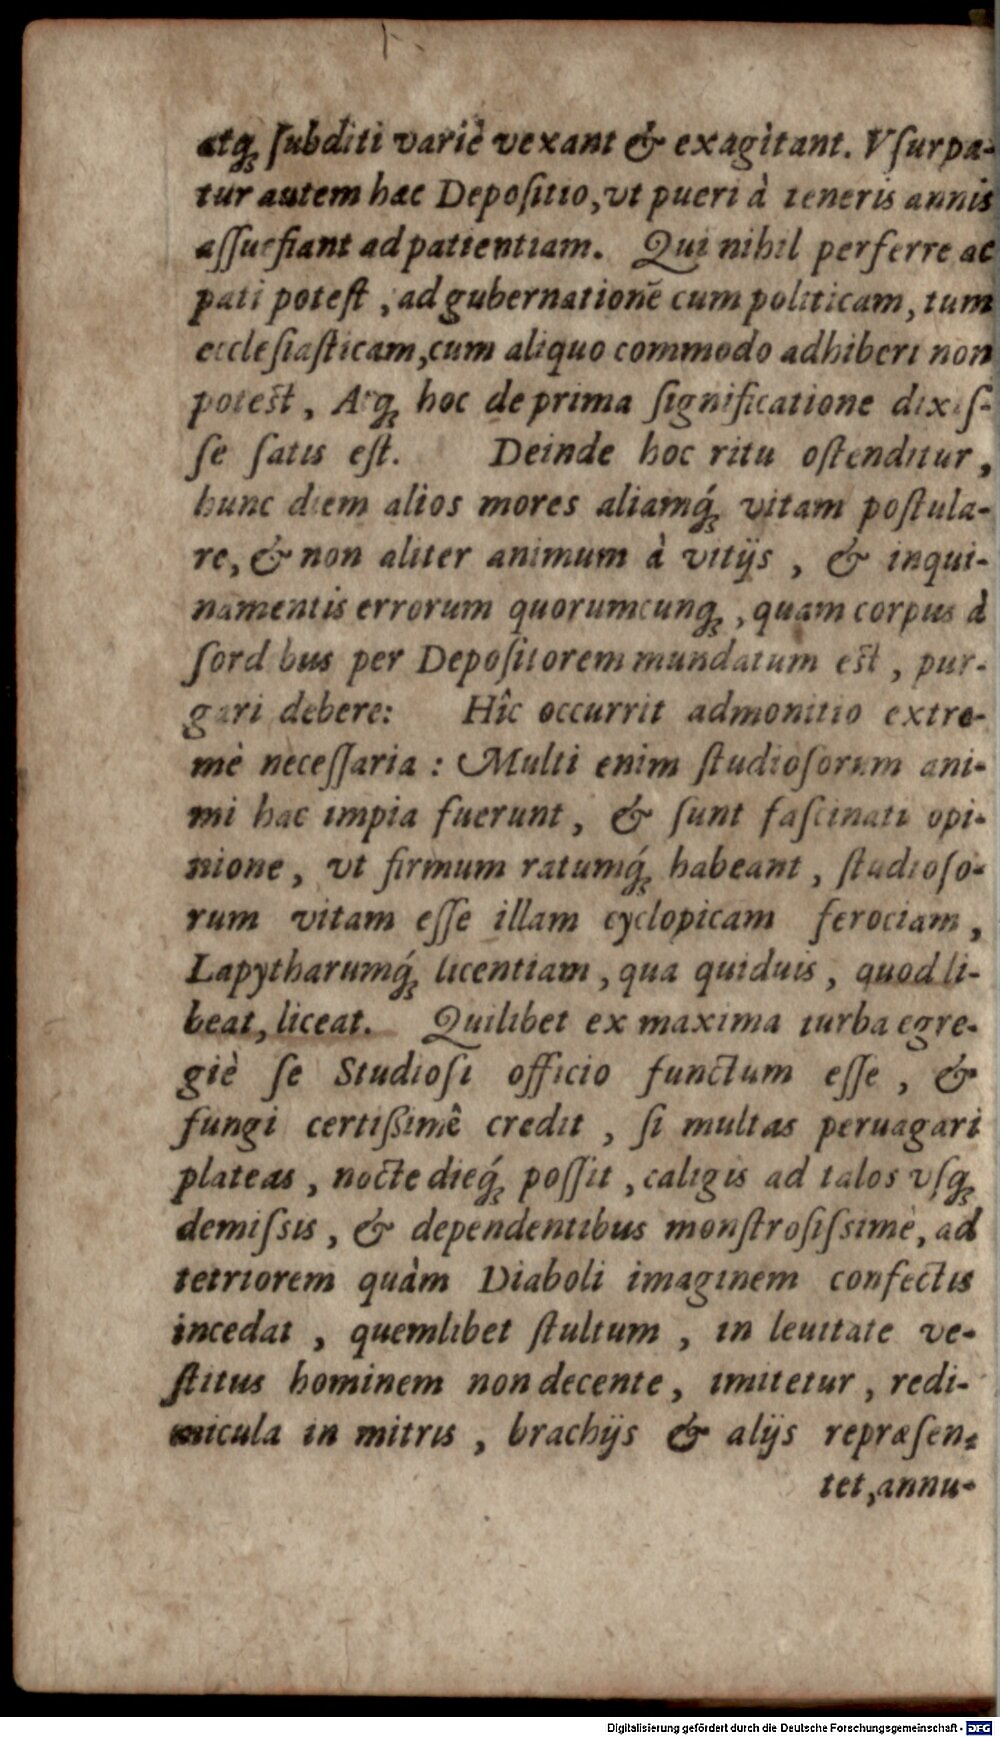 atq́ꝫ ſubditi variè vexant & exagitant. Vſurpa-
tur autem hæc Depoſitio, vt pueri à teneris annis
aſſueſiant ad patientiam. Qui nihil perferre ac
pati poteſt, ad gubernationē cum politicam, tum
eccleſiaſticam, cum aliquo commodo adhiberi non
poteſt, Atqꝫ hoc de prima ſignificatione dixiſ-
ſe ſatis eſt. Deinde hoc ritu oſtenditur,
hunc diem alios mores aliamq́ꝫ vitam poſtula-
re, & non aliter animum à vitijs, & inqui-
namentis errorum quorumcunqꝫ, quam corpus à
ſordibus per Depoſitorem mundatum eſt, pur-
gari debere: Hîc occurrit admonitio extre-
mè neceſſaria: Multi enim ſtudioſorum ani-
mi hac impia fuerunt, & ſunt faſcinati opi-
nione, vt firmum ratumq́ꝫ habeant, ſtudioſo-
rum vitam eſſe illam cyclopicam ferociam,
Lapytharumq́ꝫ licentiam, qua quiduis, quod li-
beat, liceat. Quilibet ex maxima turba egre-
giè ſe Studioſi officio functum eſſe, &
fungi certißimê credit, ſi multas peruagari
plateas, nocte dieq́ꝫ poſſit, caligis ad talos vſqꝫ
demiſsis, & dependentibus monſtroſiſsimè, ad
tetriorem quàm Diaboli imaginem confectis
incedat, quemlibet ſtultum, in leuitate ve-
ſtitus hominem non decente, imitetur, redi-
micula in mitris, brachijs & alijs repræſen-
tet, annu-
Digitalisierung gefördert durch die Deutsche Forschungsgemeinschaft - DFG